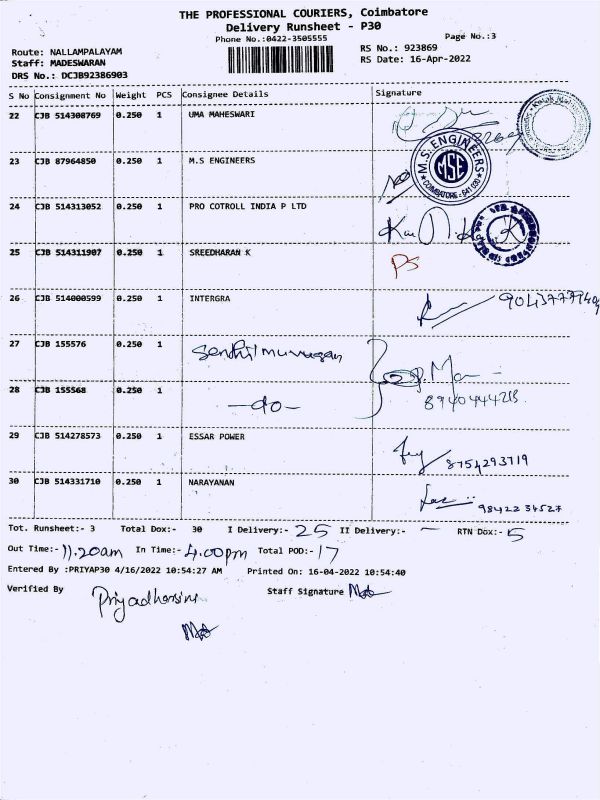 THE PROFESSIONAL COURIERS, Coimbatore
Delivery Runsheet - P30
Phone No.:0422-3505555
Page No.:3
Route: NALLAMPALAYAM
RS No.: 923869
Staff: MADESWARAN
RS Date: 16-Apr-2022
DRS No.: DCJB92386903
S No Consignment No Weight PCS Consignee Details Signature
22 CJB 514308769 0.250 1 UMA MAHESWARI
23 CJB 87964850 0.250 1 M.S ENGINEERS
M.S. ENGINEERS
MSE
COIMBATORE - 641 030
24 CJB 514313052 0.250 1 PRO COTROLL INDIA P LTD
25 CJB 514311907 0.250 1 SREEDHARAN K PS
26 CJB 514000599 0.250 1 INTERGRA
27 CJB 155576 0.250 1 Senthil murugan
28 CJB 155568 0.250 1 -do-
29 CJB 514278573 0.250 1 ESSAR POWER 8754293719
30 CJB 514331710 0.250 1 NARAYANAN 98422 34527
Tot. Runsheet:- 3 Total Dox:- 30 I Delivery:- 25 II Delivery:- - RTN Dox:- 5
Out Time:- 11.20am In Time:- 4.00pm Total POD:- 17
Entered By :PRIYAP30 4/16/2022 10:54:27 AM Printed On: 16-04-2022 10:54:40
Verified By Priyadharsini Staff Signature